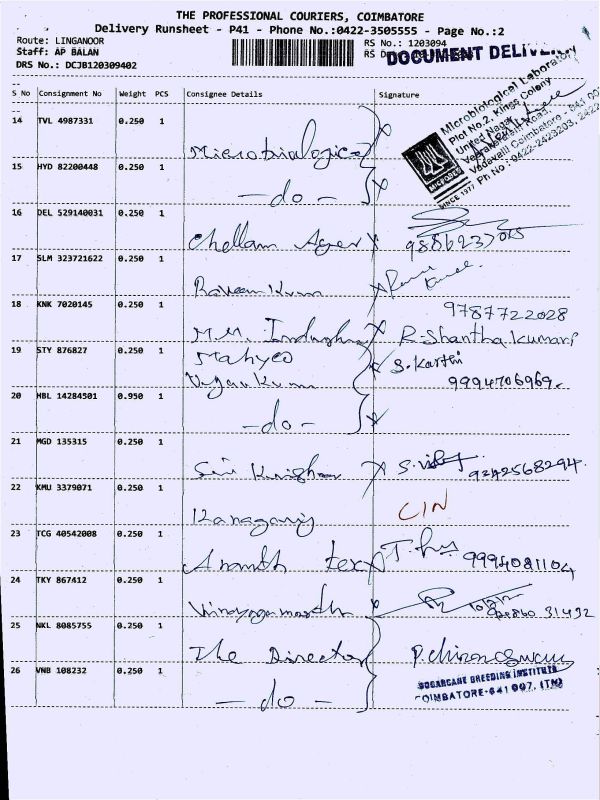 THE PROFESSIONAL COURIERS, COIMBATORE
Delivery Runsheet - P41 - Phone No.:0422-3505555 - Page No.:2
Route: LINGANOOR
RS No.: 1203094
Staff: AP BALAN
RS D
DOCUMENT DELIVERY
DRS No.: DCJB120309402
S No Consignment No Weight PCS Consignee Details Signature
Microbiological Laboratory
Plot No.2, Kings Colony
United Nagar
Vadavalli Coimbatore - 641
Ph No : 0422-2423203, 2422
MICROBES
SINCE 1977
14 TVL 4987331 0.250 1
Microbiological
15 HYD 82200448 0.250 1
- do -
16 DEL 529140031 0.250 1
Chellam Agen
17 SLM 323721622 0.250 1
18 KNK 7020145 0.250 1
9787722028
M.M. R. Shantha kumari
19 STY 876827 0.250 1
Mahyco S. Karthi
9994706969
20 HBL 14284501 0.950 1
- do -
21 MGD 135315 0.250 1
Sri Krishna 9242568294
22 KMU 3379071 0.250 1
CIN
23 TCG 40542008 0.250 1
Ananth Tex 9994081104
24 TKY 867412 0.250 1
Vinayagamoorth
25 NKL 8085755 0.250 1
The Director
26 VNB 108232 0.250 1
SUGARCANE BREEDING INSTITUTE
COIMBATORE-641 007. (TN)
- do -